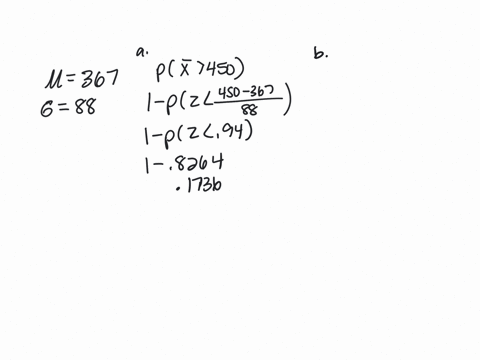 a.
b.
μ = 367
σ = 88
p(x̄ > 450)
1 - p(z < (450 - 367)/88)
1 - p(z < .94)
1 - .8264
.1736